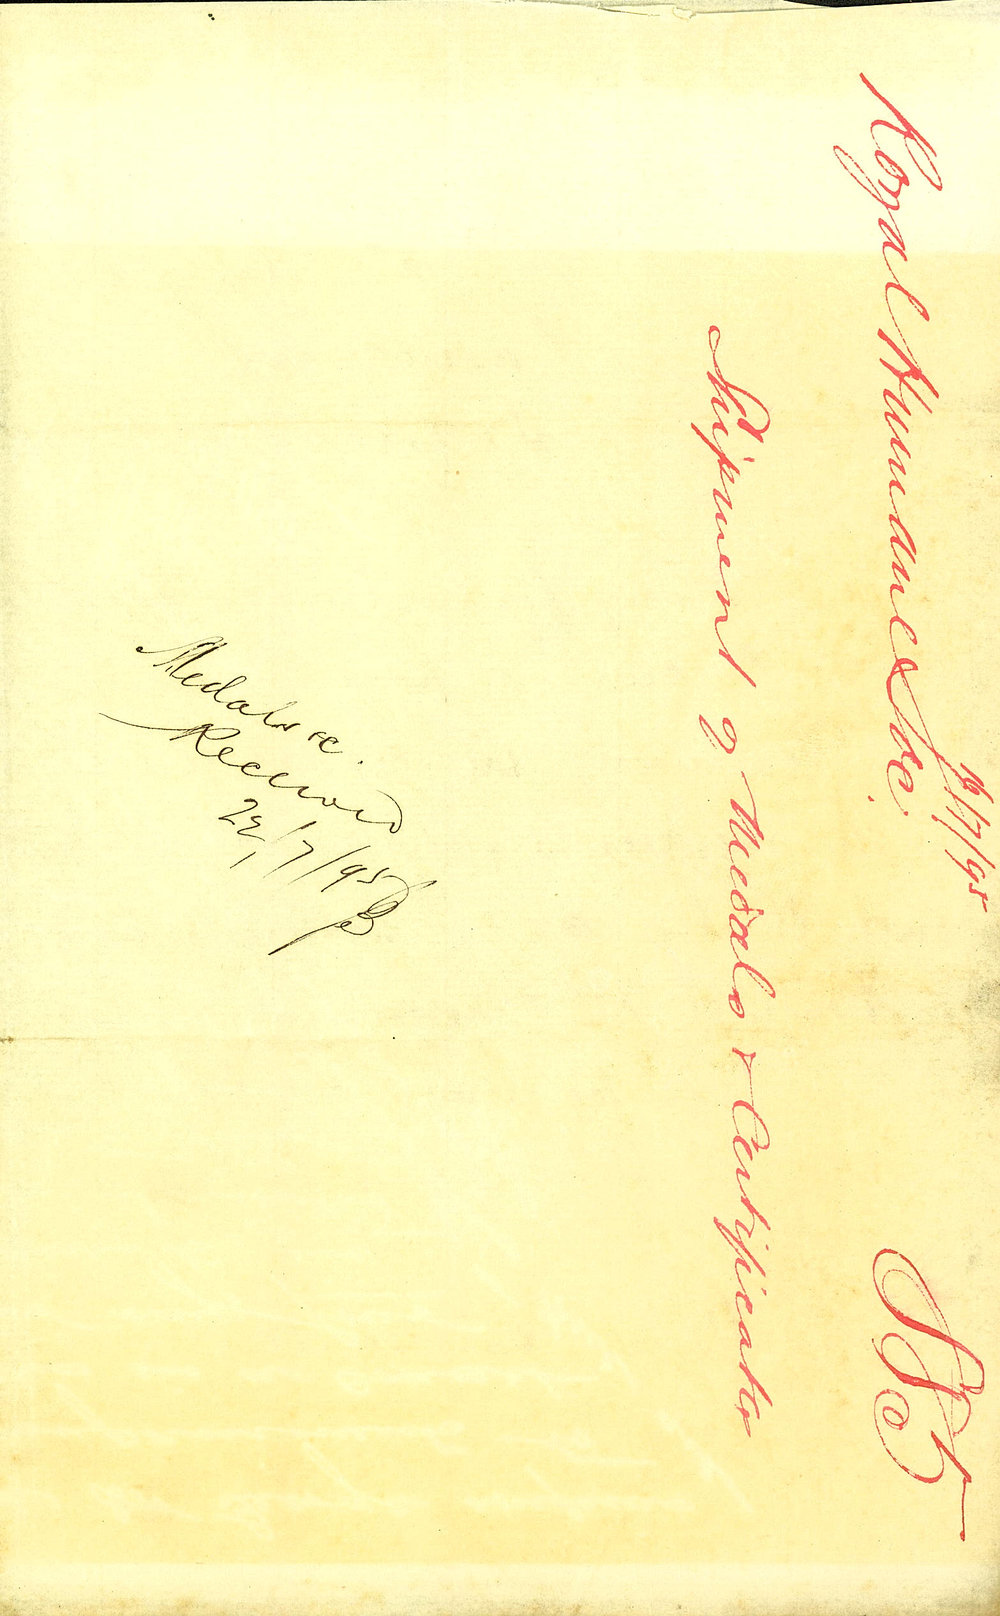 16/7/95
Royal Humane Soc.
Shipment of Medals & Certificates
Medals &c.
Received
22/7/95